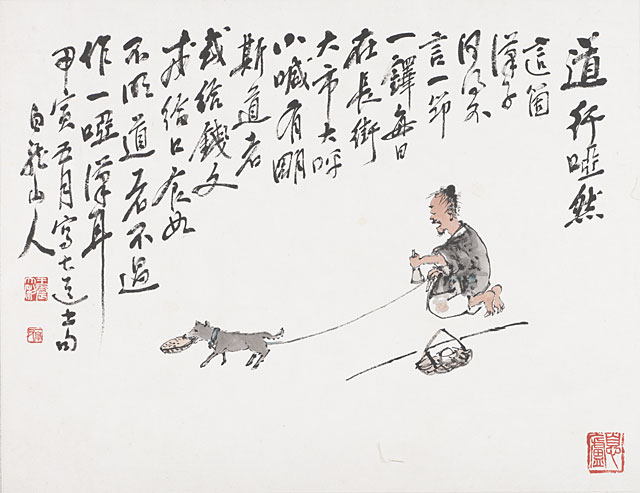 道行啞然
這箇
漢子
何不
言一節
一鐸每日
在長街
大市大呼
小喊有明
斯道者
或給錢文
或給口食如
不明道者不過
作一啞漢耳
甲寅五月寫
白龍山人